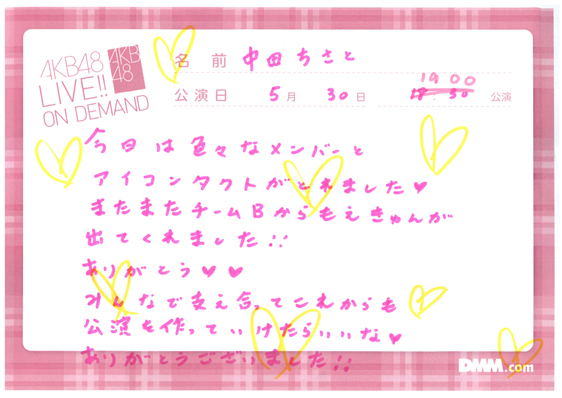 AKB48
LIVE!!
ON DEMAND
AKB
48
名前 中田ちさと
公演日 5月30日 18:30 1900 公演
今日は色々なメンバーと
アイコンタクトがとれました♥
またまたチームBからもえきゅんが
出てくれました!!
ありがとう♥♥
みんなで支え合ってこれからも
公演を作っていけたらいいな♥
ありがとうございました!!
DMM.com